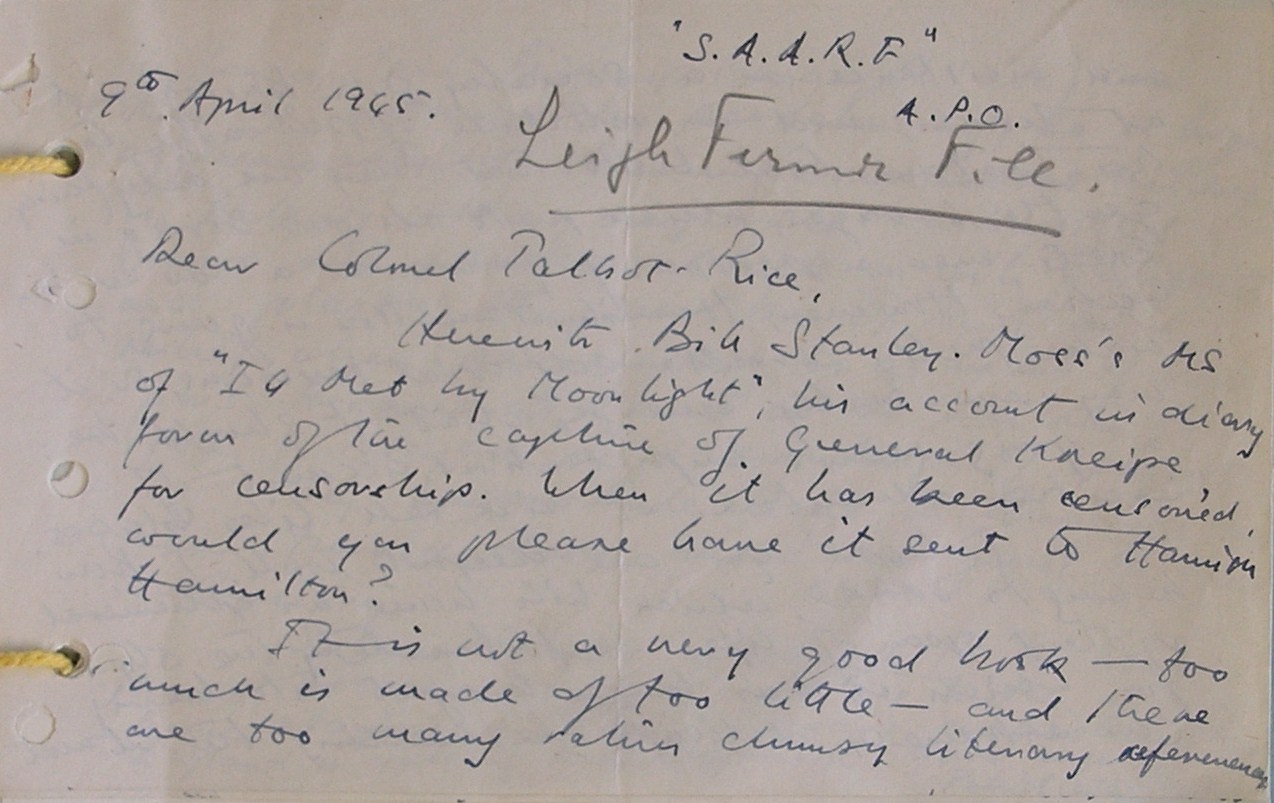 "S.A.A.R.F"
A.P.O.
9th April 1945.
Leigh Fermor File.
Dear Colonel Talbot-Rice,
Herewith Bill Stanley-Moss's MS
of "Ill Met by Moonlight", his account in diary
form of the capture of General Kreipe
for censorship. When it has been censored,
would you please have it sent to Hamish
Hamilton?
It is not a very good book — too
much is made of too little — and there
are too many rather clumsy literary references